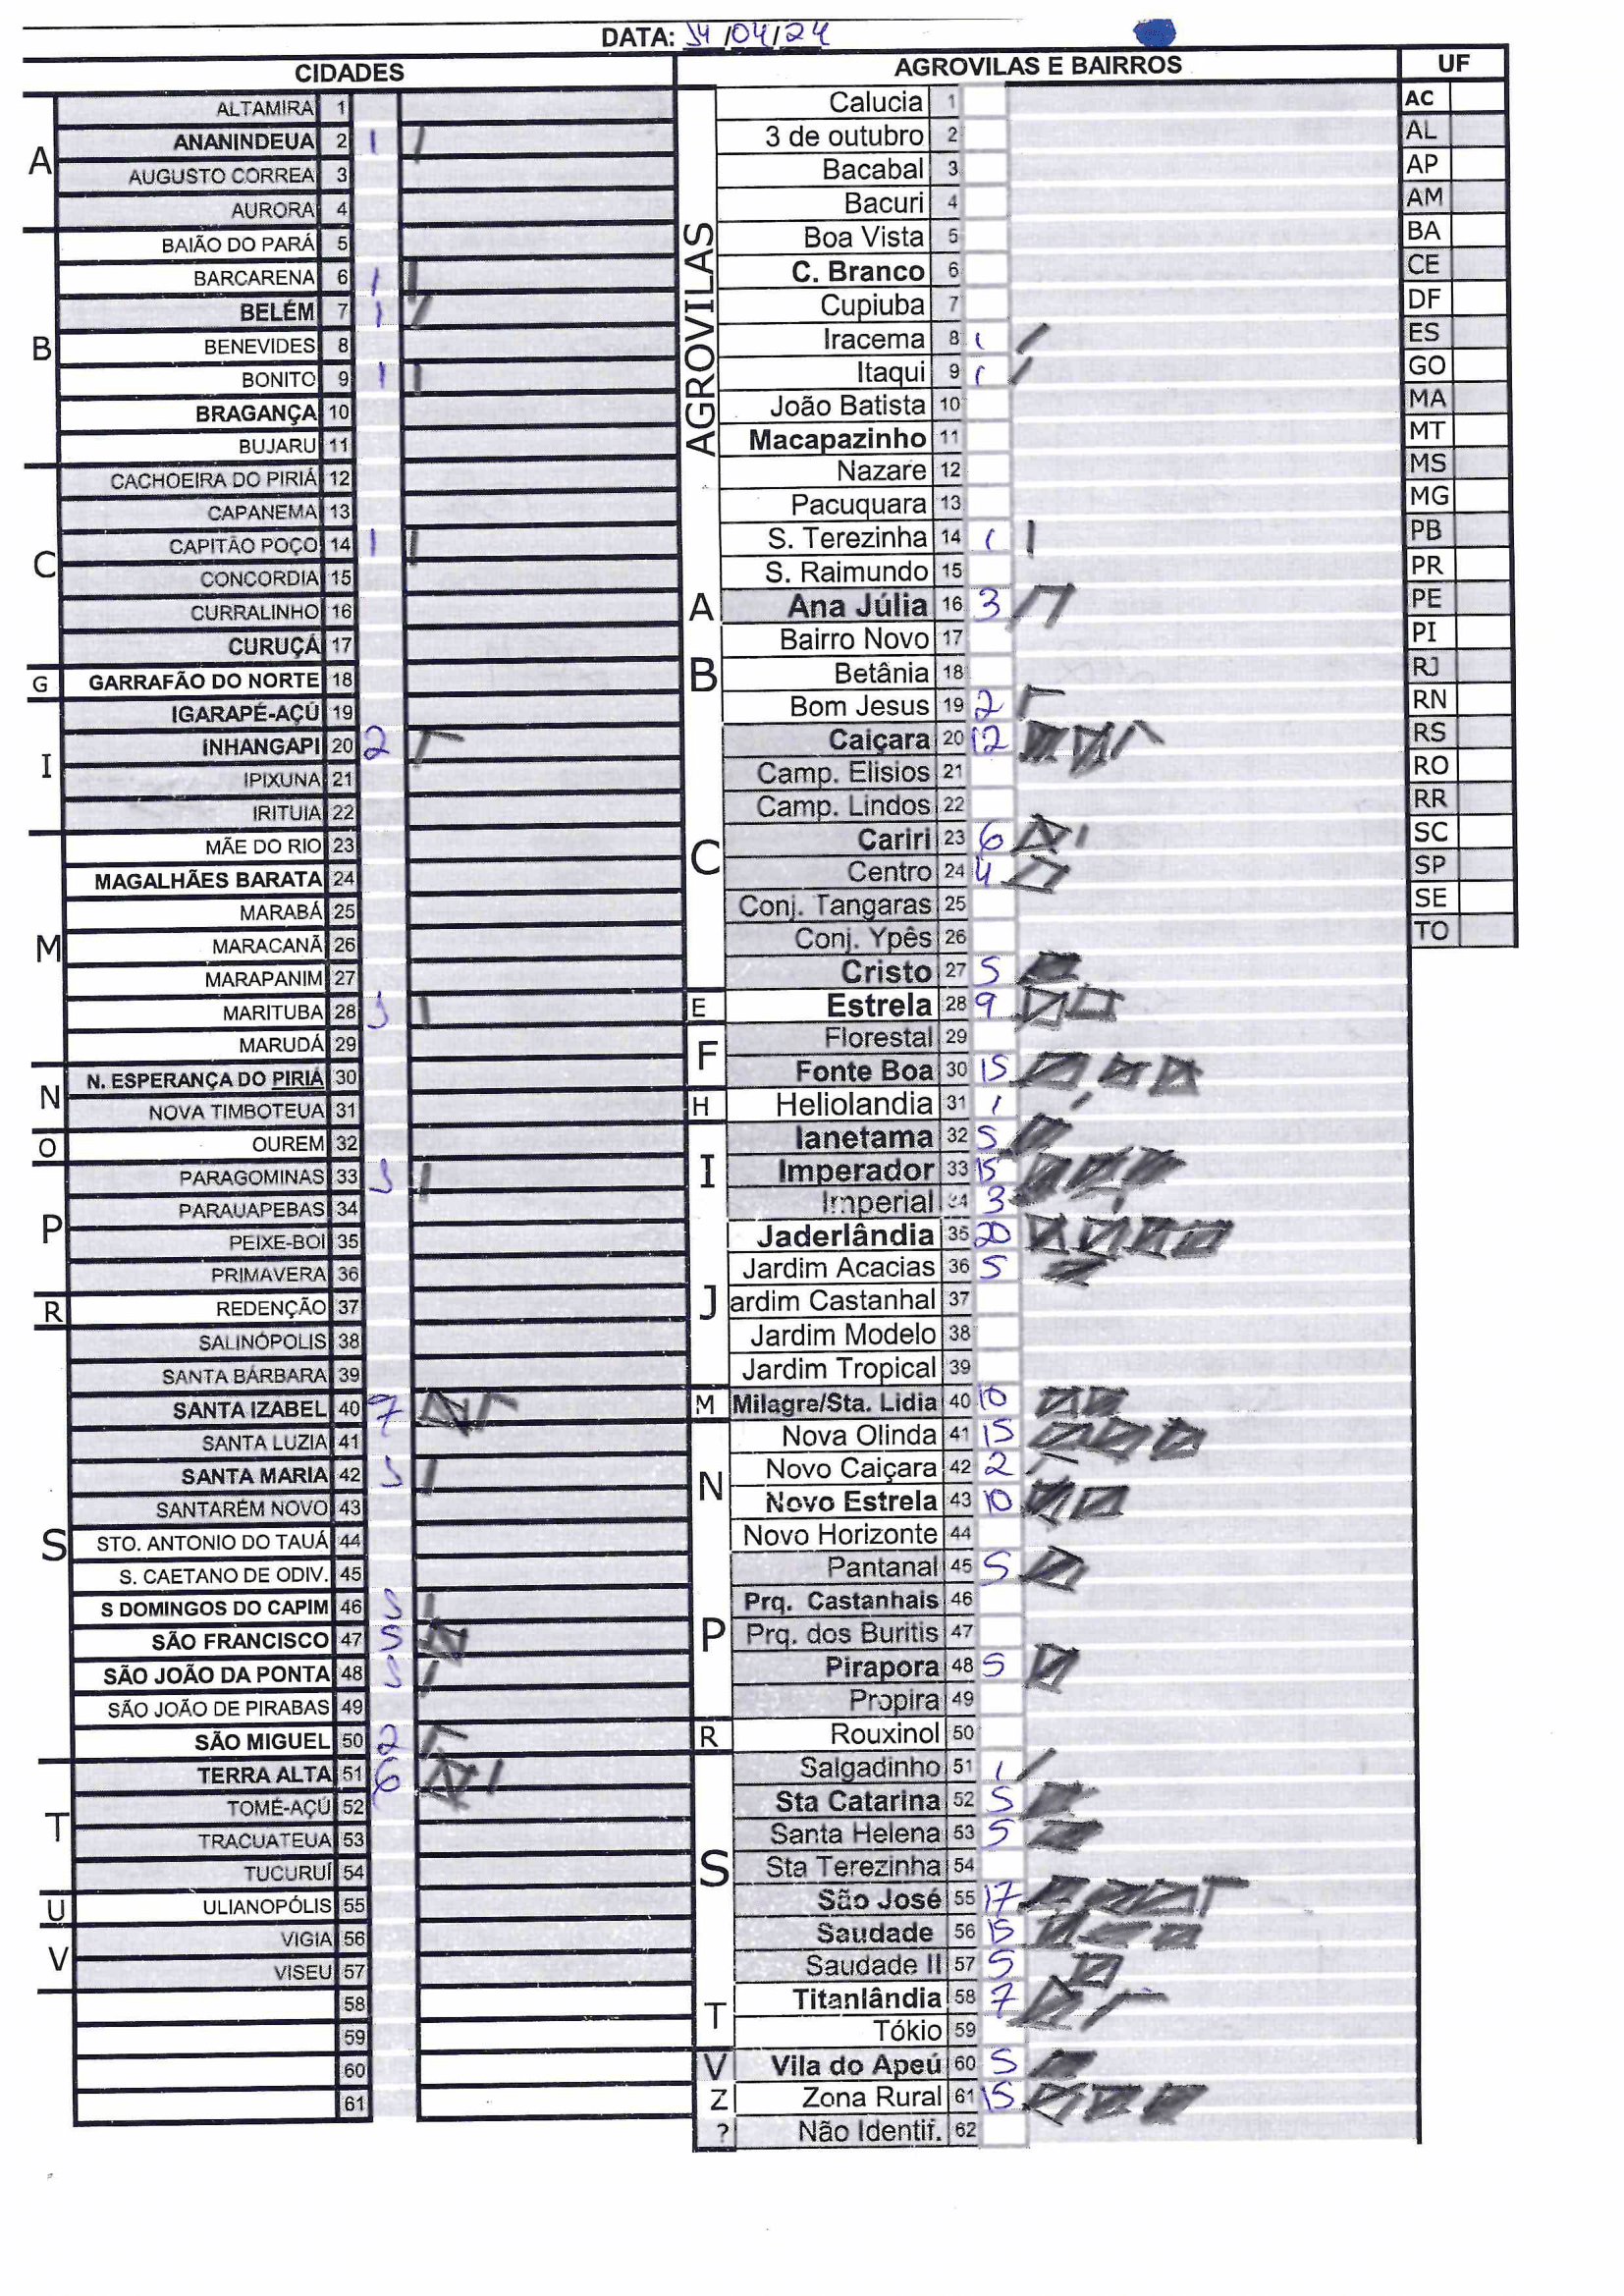 DATA: 14/04/24
CIDADES
A
ALTAMIRA 1
ANANINDEUA 2 1
AUGUSTO CORREA 3
AURORA 4
B
BAIÃO DO PARÁ 5
BARCARENA 6 1
BELÉM 7 1
BENEVIDES 8
BONITO 9 1
BRAGANÇA 10
BUJARU 11
C
CACHOEIRA DO PIRIÁ 12
CAPANEMA 13
CAPITÃO POÇO 14 1
CONCORDIA 15
CURRALINHO 16
CURUÇÁ 17
G
GARRAFÃO DO NORTE 18
I
IGARAPÉ-AÇÚ 19
INHANGAPI 20 2
IPIXUNA 21
IRITUIA 22
M
MÃE DO RIO 23
MAGALHÃES BARATA 24
MARABÁ 25
MARACANÃ 26
MARAPANIM 27
MARITUBA 28 1
MARUDÁ 29
N
N. ESPERANÇA DO PIRIÁ 30
NOVA TIMBOTEUA 31
O
OUREM 32
P
PARAGOMINAS 33 1
PARAUAPEBAS 34
PEIXE-BOI 35
PRIMAVERA 36
R
REDENÇÃO 37
S
SALINÓPOLIS 38
SANTA BÁRBARA 39
SANTA IZABEL 40 7
SANTA LUZIA 41
SANTA MARIA 42 1
SANTARÉM NOVO 43
STO. ANTONIO DO TAUÁ 44
S. CAETANO DE ODIV. 45
S DOMINGOS DO CAPIM 46 1
SÃO FRANCISCO 47 5
SÃO JOÃO DA PONTA 48 1
SÃO JOÃO DE PIRABAS 49
SÃO MIGUEL 50 2
T
TERRA ALTA 51 6
TOMÉ-AÇÚ 52
TRACUATEUA 53
TUCURUÍ 54
U
ULIANOPÓLIS 55
V
VIGIA 56
VISEU 57
58
59
60
61
AGROVILAS E BAIRROS
AGROVILAS
Calucia 1
3 de outubro 2
Bacabal 3
Bacuri 4
Boa Vista 5
C. Branco 6
Cupiuba 7
Iracema 8 1
Itaqui 9 1
João Batista 10
Macapazinho 11
Nazare 12
Pacuquara 13
S. Terezinha 14 1
S. Raimundo 15
A
Ana Júlia 16 3
B
Bairro Novo 17
Betânia 18
Bom Jesus 19 2
C
Caiçara 20 12
Camp. Elisios 21
Camp. Lindos 22
Cariri 23 6
Centro 24 4
Conj. Tangaras 25
Conj. Ypês 26
Cristo 27 5
E
Estrela 28 9
F
Florestal 29
Fonte Boa 30 15
H
Heliolandia 31 1
I
Ianetama 32 5
Imperador 33 15
Imperial 34 3
J
Jaderlândia 35 20
Jardim Acacias 36 5
ardim Castanhal 37
Jardim Modelo 38
Jardim Tropical 39
M
Milagre/Sta. Lidia 40 10
N
Nova Olinda 41 15
Novo Caiçara 42 2
Novo Estrela 43 10
Novo Horizonte 44
P
Pantanal 45 5
Prq. Castanhais 46
Prq. dos Buritis 47
Pirapora 48 5
Propira 49
R
Rouxinol 50
S
Salgadinho 51 1
Sta Catarina 52 5
Santa Helena 53 5
Sta Terezinha 54
São José 55 17
Saudade 56 15
Saudade II 57 5
T
Titanlândia 58 7
Tókio 59
V
Vila do Apeú 60 5
Z
Zona Rural 61 15
?
Não Identif. 62
UF
AC
AL
AP
AM
BA
CE
DF
ES
GO
MA
MT
MS
MG
PB
PR
PE
PI
RJ
RN
RS
RO
RR
SC
SP
SE
TO